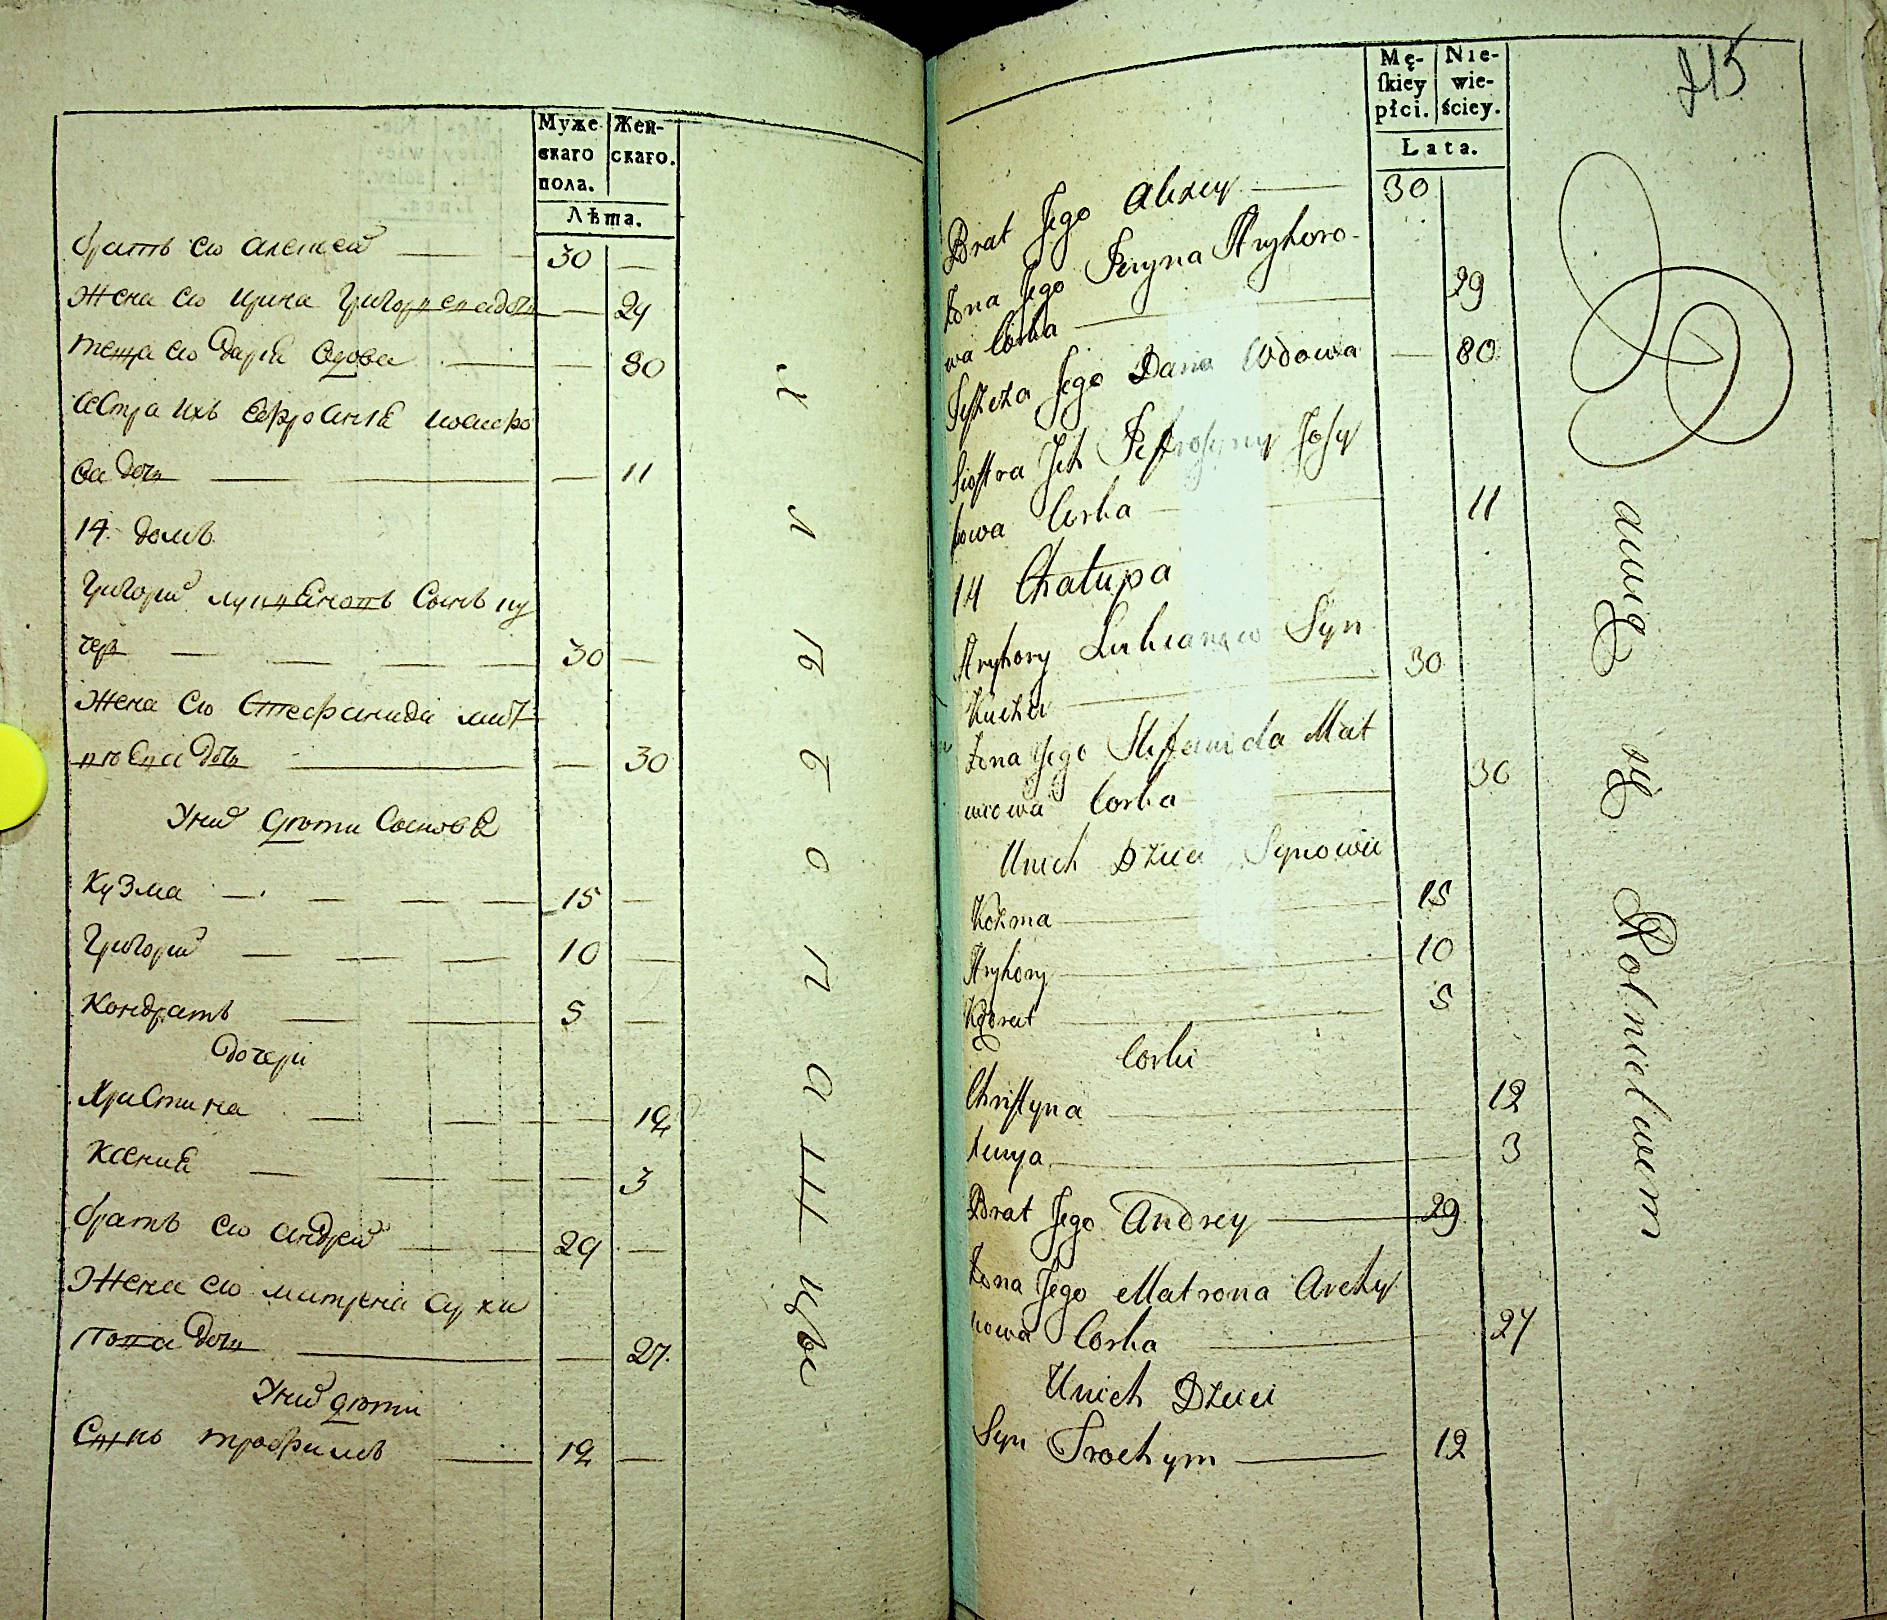 Муже
скаго
пола.
Жен-
скаго.
Лѣта.
братъ его алексей 30
Жена его ирина Григорьева дочь 29
теща его Дарія вдова 80
сестра ихъ Ефросинія иосифо
ва дочь 11
14 домъ
Григорий лукъяновъ Сынъ ку
чер 30
Жена его Стефанида мат
вѣева дочь 30
У них дети Сыновья
Кузма 15
Григорий 10
Кондратъ 5
Дочери
Христина 12
Ксения 3
братъ его андрей 29
Жена его матрена архи
пова дочь 27.
У них дети
Сынъ трофимъ 12
хлебопашцы
Mę-
ſkiey
płci.
Nie-
wie-
ściey.
Lata.
215
Brat Jego Alexey 30
Żona Jego Jeryna Hryhoro-
wa Corka 29
Teszcza Jego Daria Wdowa 80
Siostra Jch Jefrosyny Josy
fowa Corka 11
14 Chałupa
Hryhory Lukianow Syn
Kuchar 30
Żona Jego Stefanida Mat
wiewa Corka 30
Unich Dzieci Synowie
Kozma 15
Hryhory 10
Kodrat 5
Corki
Christyna 12
Xenya 3
Brat Jego Andrey 29
Żona Jego Matrona Archy
powa Corka 27
Unich Dzieci
Syn Trochym 12
Bawią się Rolnictwem